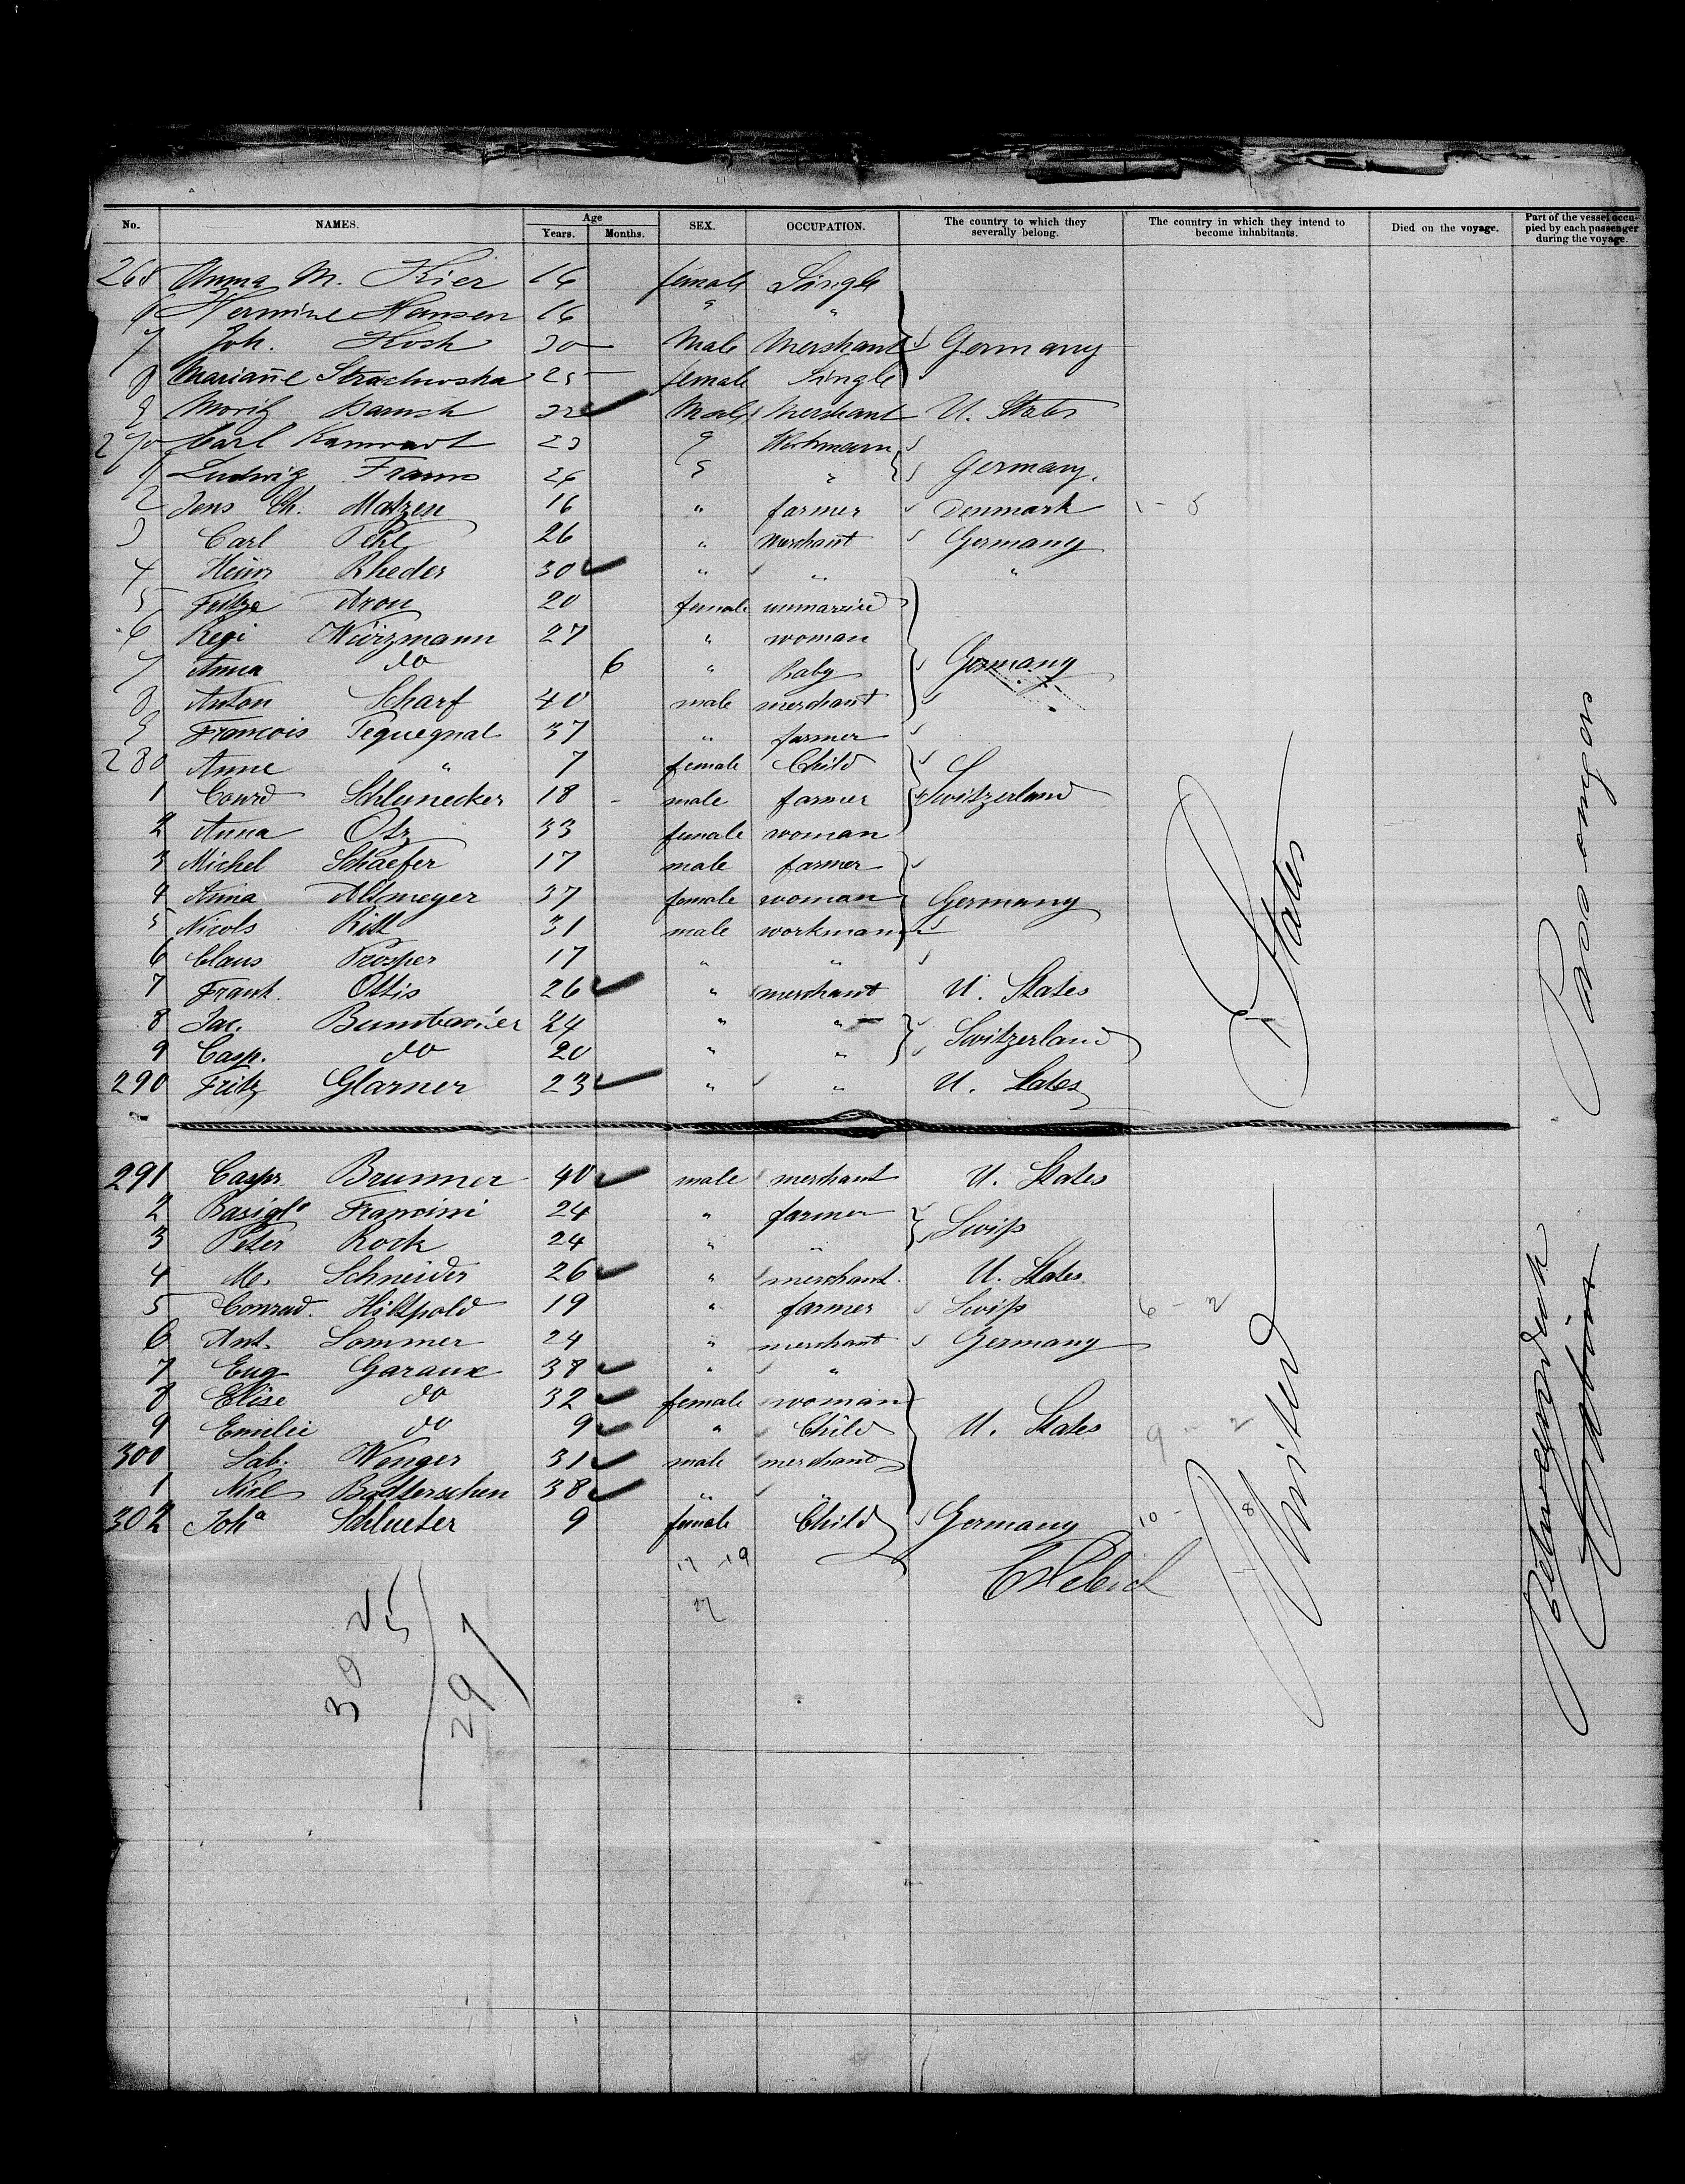 No. NAMES. Age Years. Months. SEX. OCCUPATION. The country to which they severally belong. The country in which they intend to become inhabitants. Died on the voyage. Part of the vessel occupied by each passenger during the voyage.
265 Anna M. Kier 16 female Single
6 Hermine Hansen 16 " "
7 Joh. Koch 30 Male Merchant Germany
8 Marianne 25 female Single
9 Moritz 32 Male Merchant U. States
270 Carl 23 " Workmann
1 Ludwig 26 " " Germany.
2 Jens Ch. Matzen 16 " farmer Denmark
3 Carl 26 " Merchant Germany
4 Heinr Rheder 30 " " "
5 Aron 20 female unmarried
6 Regi Würzmann 27 " woman
7 Anna do 6 " Baby Germany
8 Anton Scharf 40 male merchant
9 Francois Pequegnat 37 " farmer
280 Anne " 7 female Child
1 Conrd Schlunecker 18 male farmer Switzerland
2 Anna Otz 33 female woman
3 Michel Schaefer 17 male farmer
4 Anna Altmeyer 37 female woman Germany
5 Nicols 31 male workmann
6 Claus Prosper 17 " "
7 Frank. Ottis 26 " merchant U. States
8 Jac. 24 " "
9 Casp. do 20 " " Switzerland
290 Fritz Glarner 23 " " U. States
291 Caspr. Brunner 40 male merchant U. States
2 Francini 24 " farmer
3 Peter Rock 24 " " Swiss
4 M. Schneider 26 " merchant. U. States
5 Conrad. Hiltpold 19 " farmer Swiss 6 - 2
6 Ant. Sommer 24 " merchant Germany
7 Eug Garaux 38 " "
8 Elise do 32 female woman
9 Emilie do 9 " Child U. States 9 - 2
300 Sab. Wenger 31 male merchant
1 Nicl 38 " "
302 Joha Schlueter 9 female Child Germany 10 -
United States
Passengers
Betweendeck
25
30
297